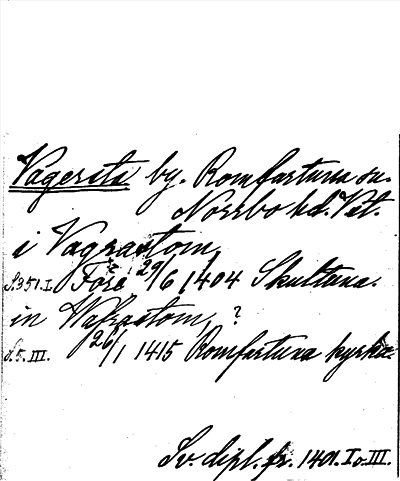 Vagersta by. Romfartuna sn.
Norrbo hd. Vstl.
i Vagrastom,
S. 351. I. Före 29/6 1404 Skultuna.
in Wafrastom, ?
s. 5. III. 26/1 1415 Romfartuna kyrka
Sv. dipl. fr. 1401. I o. III.